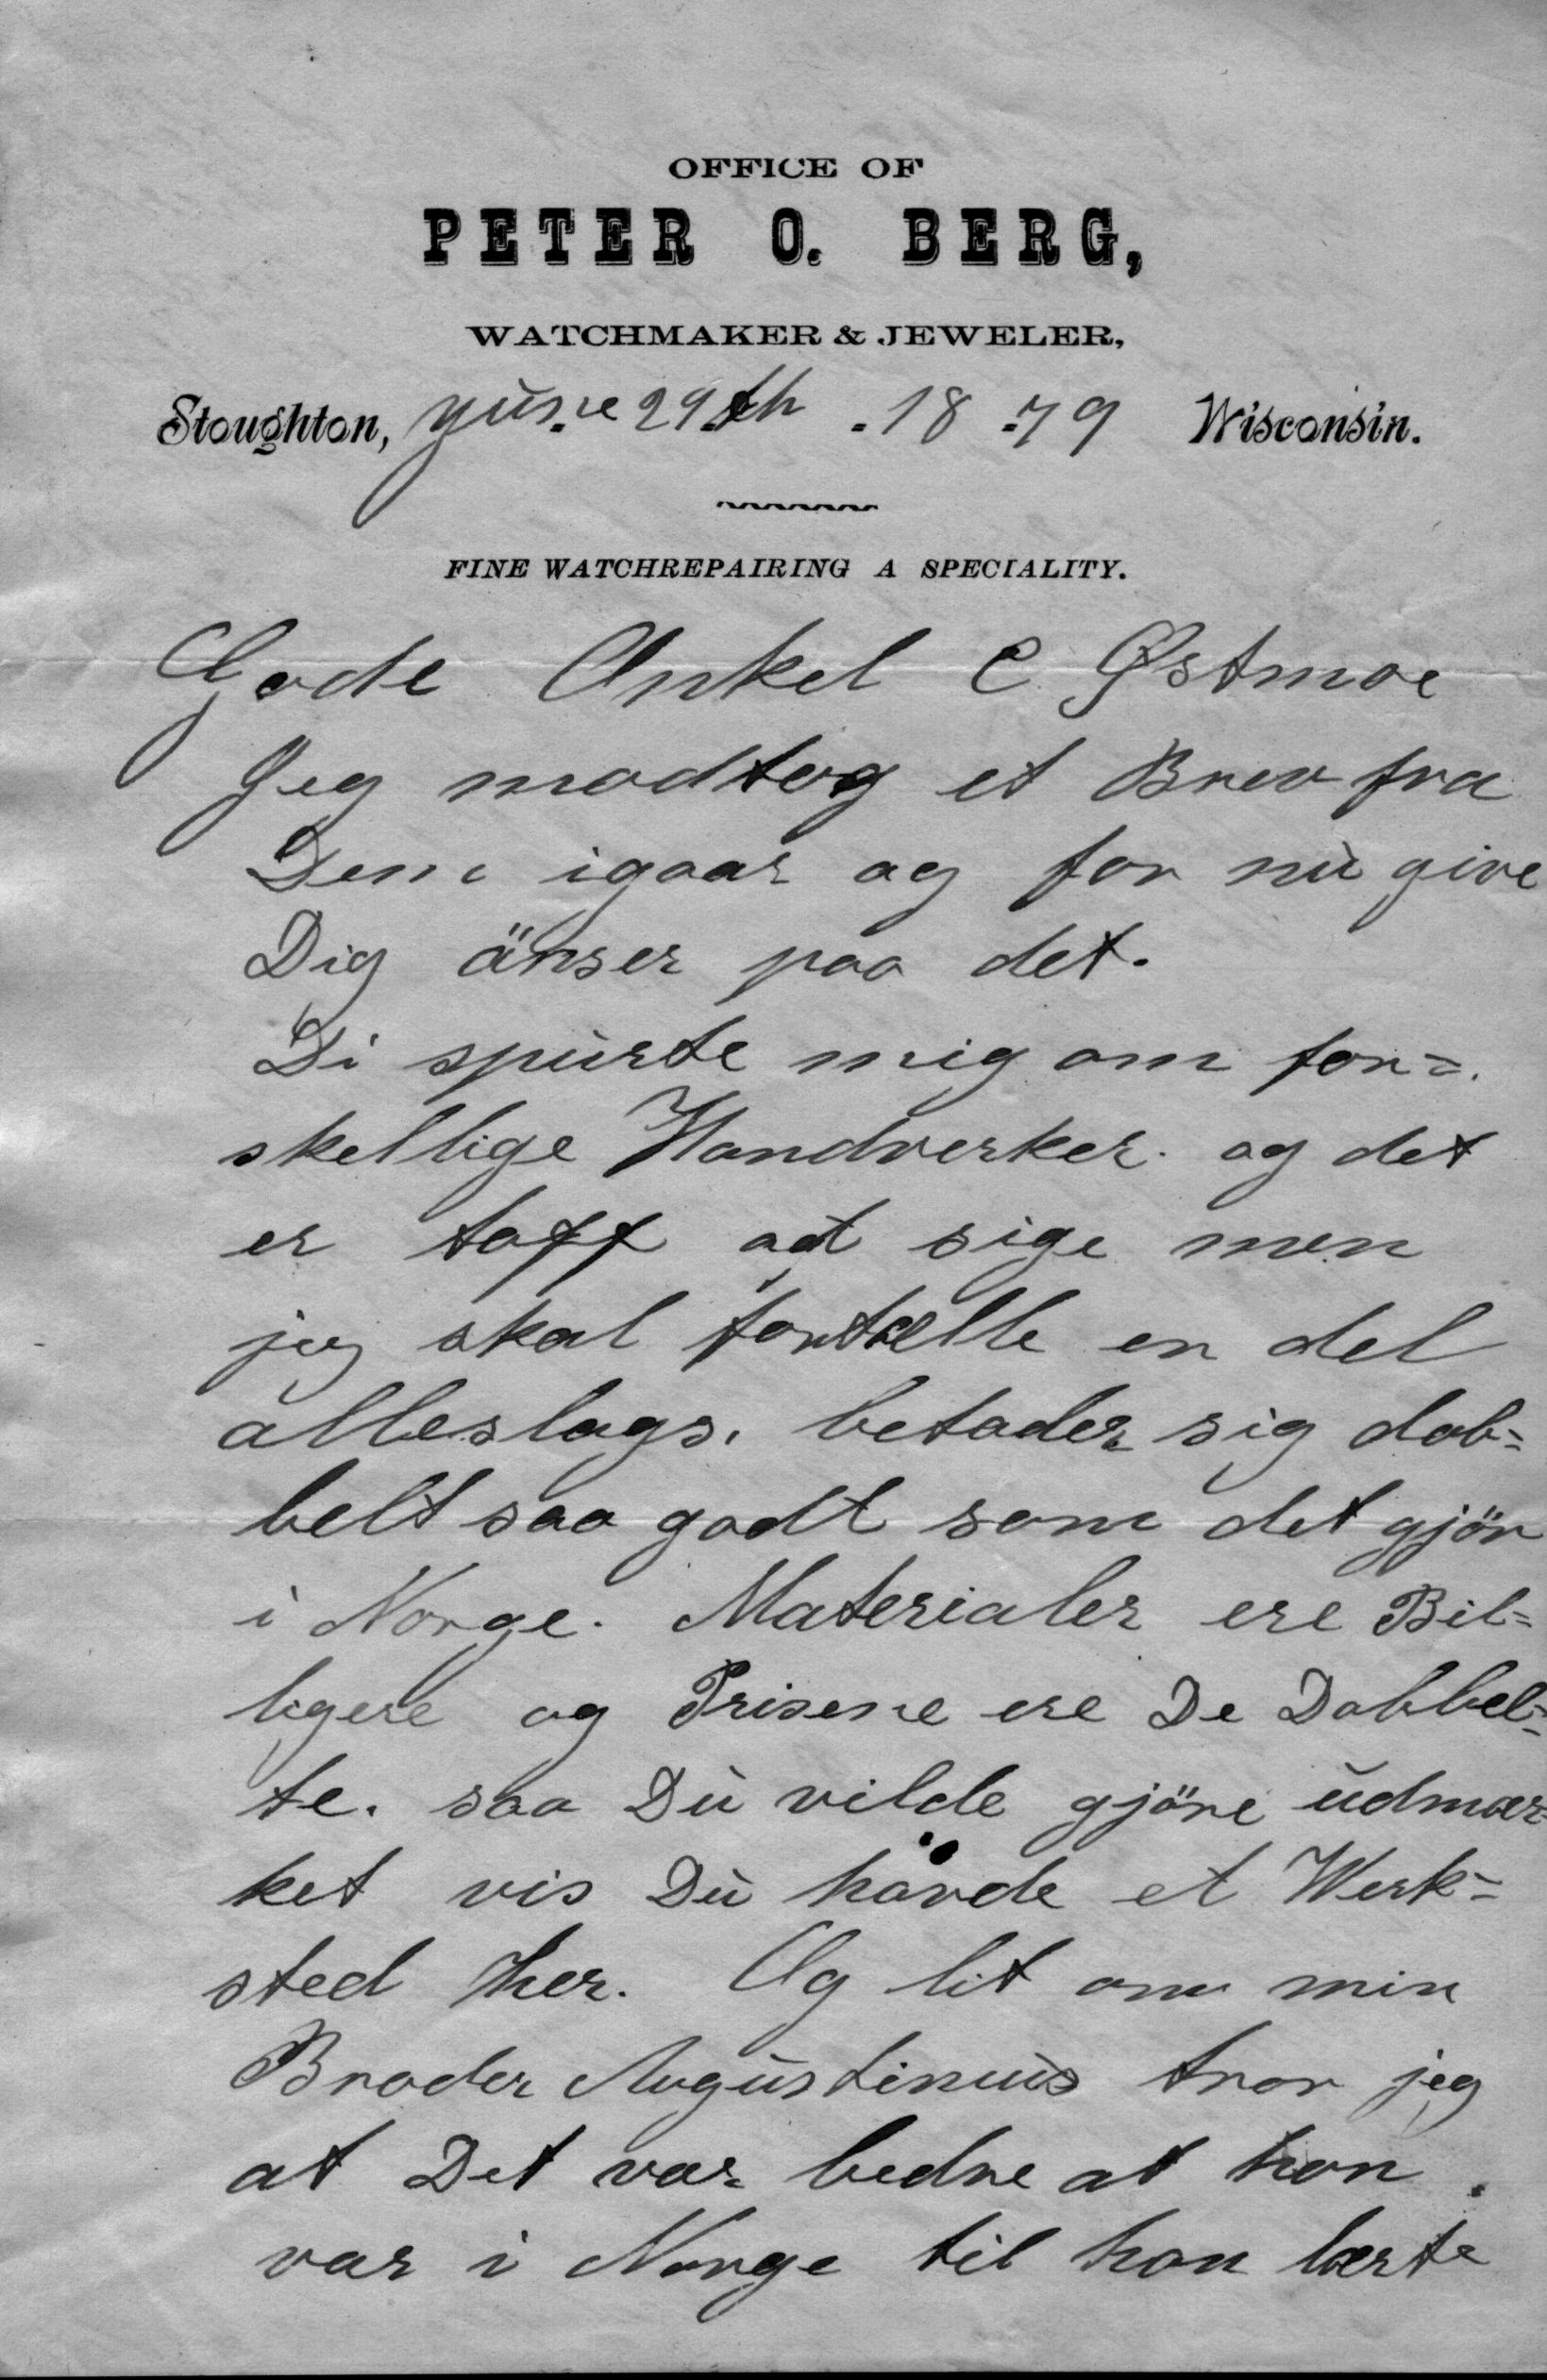 OFFICE OF
PETER O. BERG,
WATCHMAKER & JEWELER,
Stoughton, yune 29th . 18 79 Wisconsin.
FINE WATCHREPAIRING A SPECIALITY.
Gode Onkel C Østmoe
Jeg modtog et Brev fra
Dem igaar og for nù give
Dig änser paa det.
Di spùrte mig om for=
skellige Handverker. og det
er toff at sige men
jeg skal fortælle en del
alleslags. betader sig dob=
belt saa godt som det gjör
i Norge. Materialer ere Bil=
ligere og Prisene ere De Dobbel=
te. saa Dù vilde gjöre ùdmær=
ket vis Dù havde et Werk=
sted her. Og lit om min
Broder Augùstinùs tror jeg
at Det var bedre at han
var i Norge til han lærte